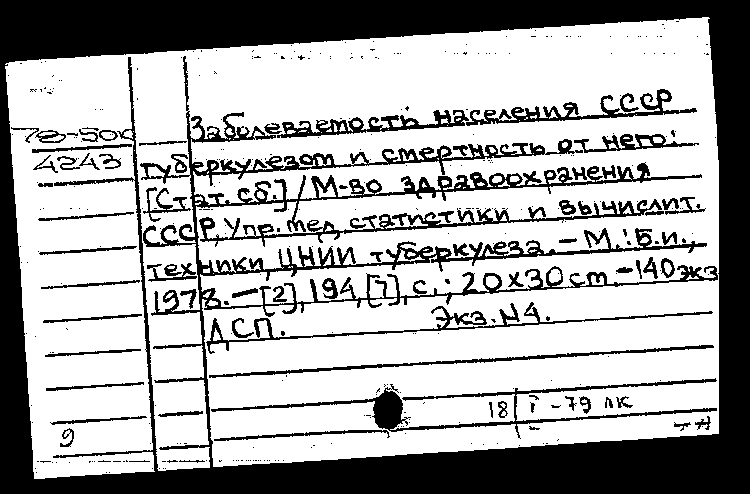 Заболеваемость населения СССР
78-50к
4243
туберкулезом и смертность от него:
[Стат. сб.] / М-во здравоохранения
СССР, Упр. мед. статистики и вычислит.
техники, ЦНИИ туберкулеза. – М.: Б.и.,
1978. – [2], 194, [7], с.; 20х30 cm. – 140 экз
ДСП. Экз. N4.
18 | I - 79 лк
9